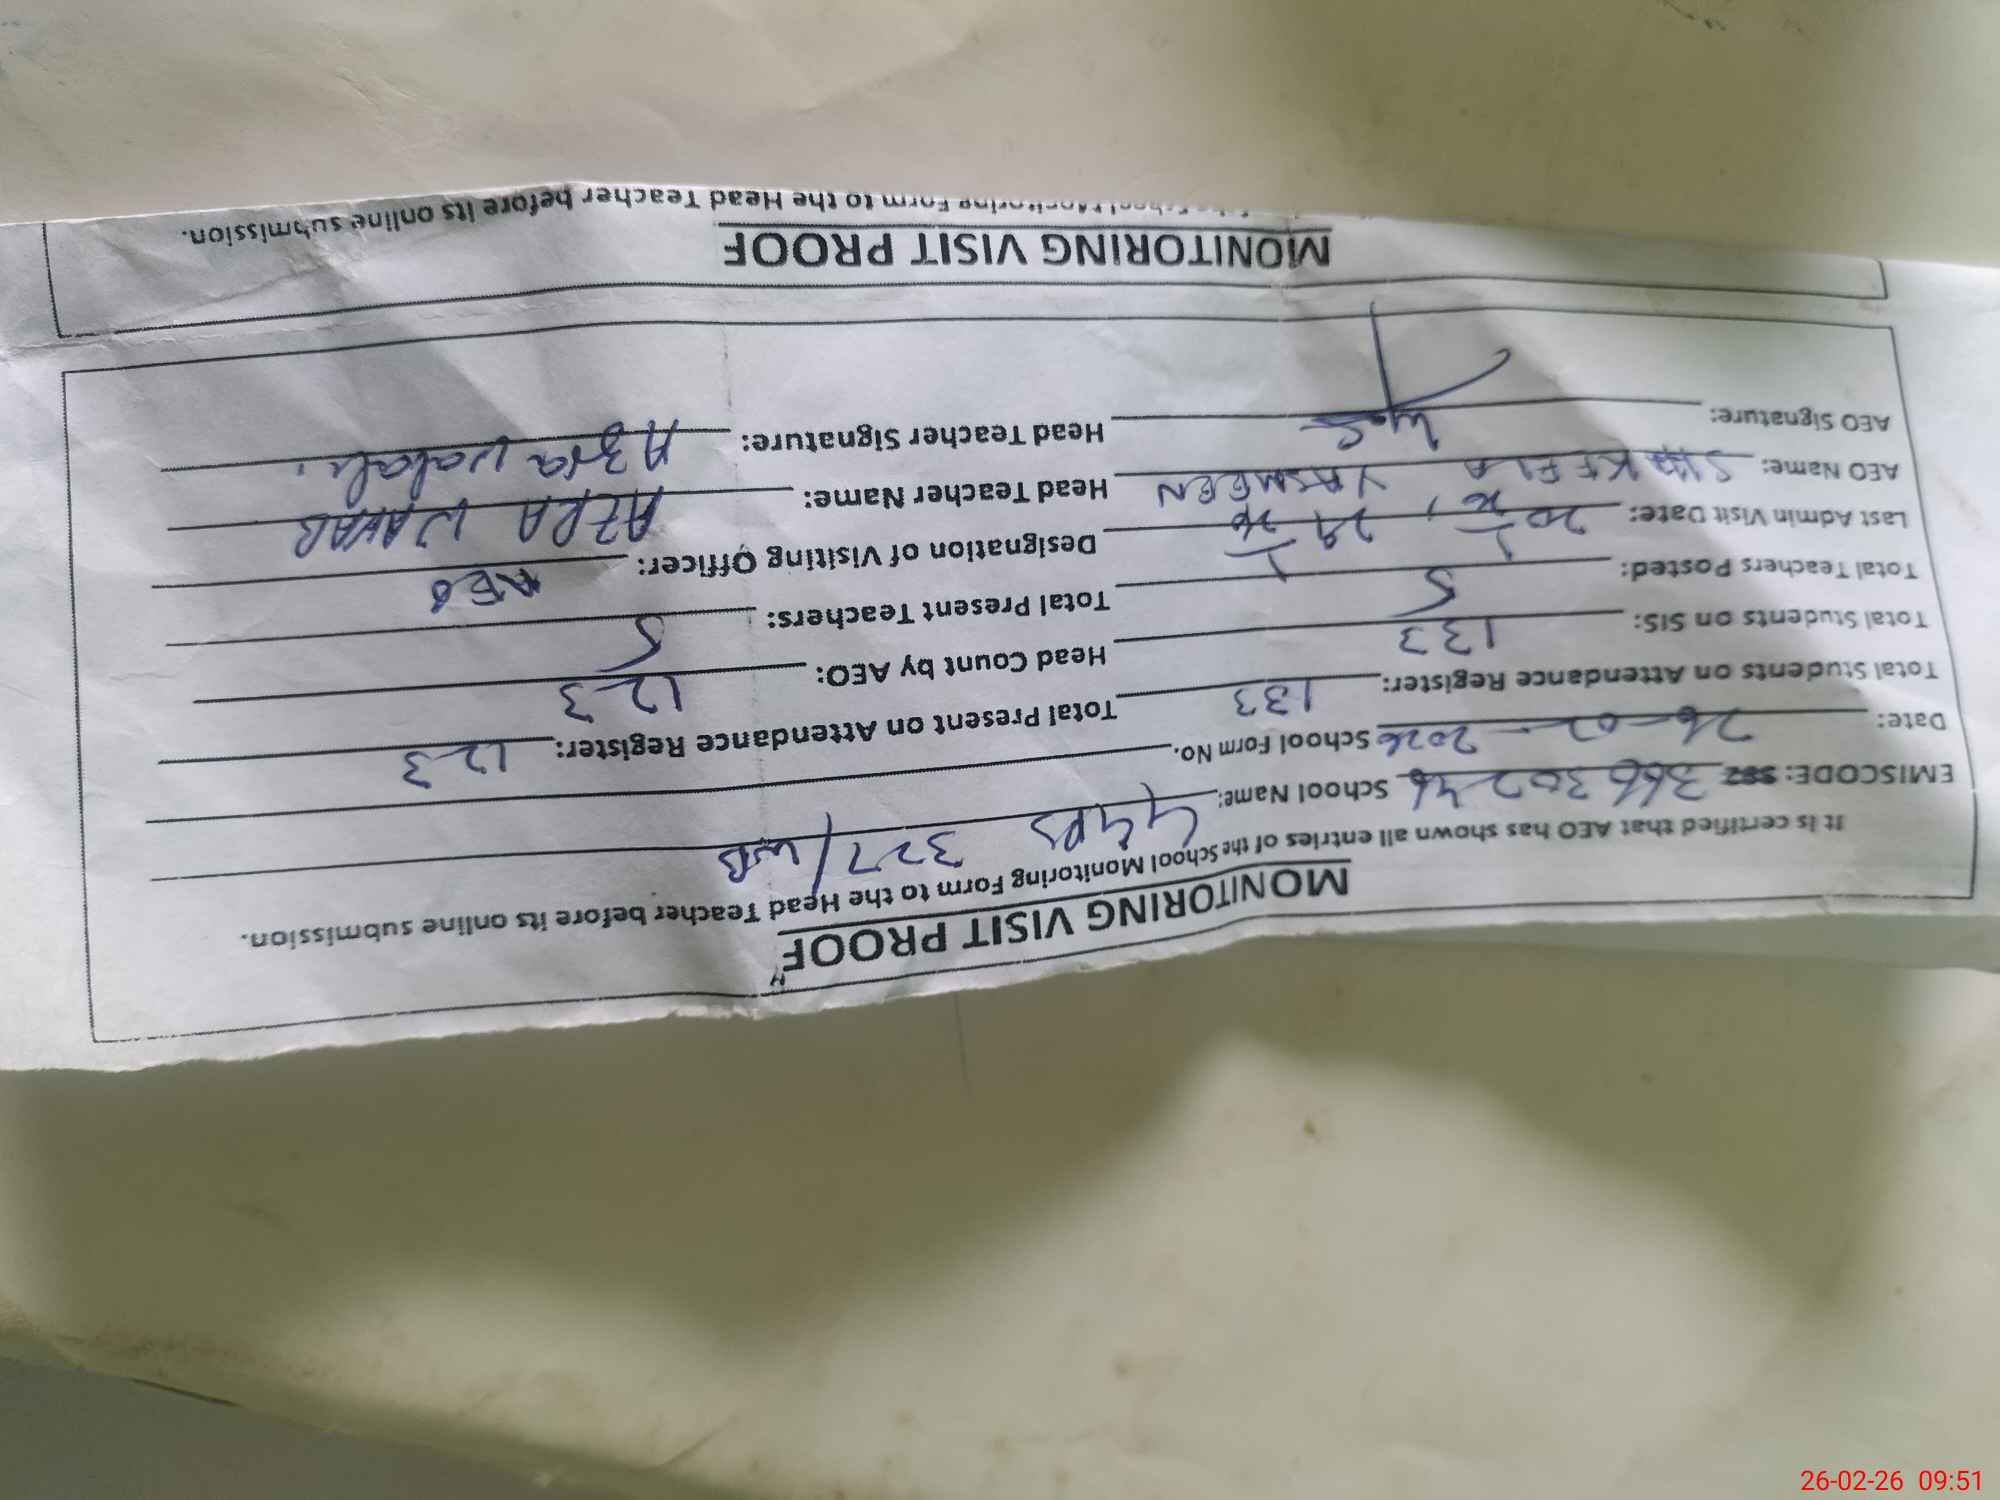 MONITORING VISIT PROOF
It is certified that AEO has shown all entries of the School Monitoring Form to the Head Teacher before its online submission.
EMISCODE: 36630246 School Name: GGPS 327/WB
Date: 26-02-2026 School Form No.
Total Students on Attendance Register: 133 Total Present on Attendance Register: 123
Total Students on SIS: 133 Head Count by AEO: 123
Total Teachers Posted: 5 Total Present Teachers: 5
Last Admin Visit Date: 20/1/26, 29/1/26 Designation of Visiting Officer: AEO
AEO Name: YASMEEN Head Teacher Name: AZRA WAHAB
AEO Signature: Head Teacher Signature: Azra wahab.
MONITORING VISIT PROOF
School Monitoring Form to the Head Teacher before its online submission.
26-02-26 09:51